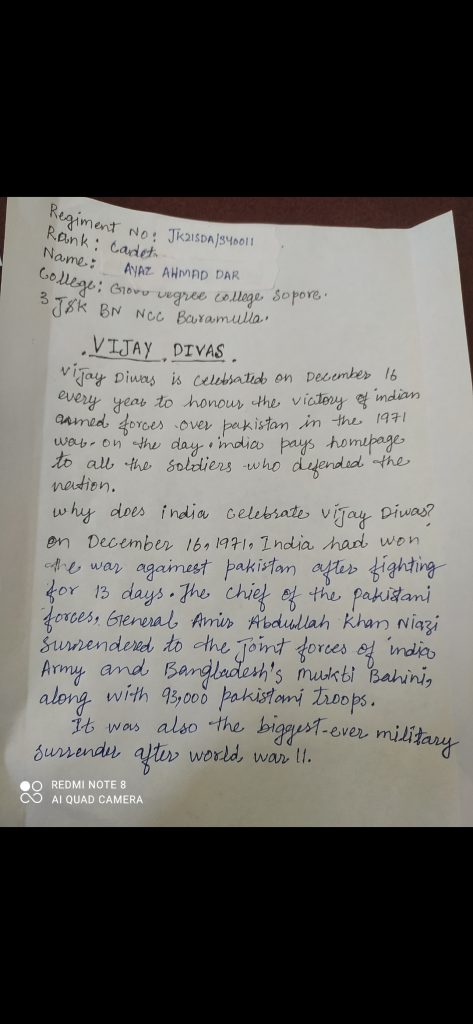 Regiment No: JK21SDA/340011
Rank: Cadet
Name: AYAZ AHMAD DAR
College: Govt Degree College Sopore.
3 J&K BN NCC Baramulla.
VIJAY DIVAS.
Vijay Diwas is celebrated on December 16
every year to honour the victory of indian
armed forces over pakistan in the 1971
war. on the day. india pays homepage
to all the soldiers who defended the
nation.
why does india celebrate vijay Diwas?
on December 16, 1971, India had won
the war againest pakistan after fighting
for 13 days. The chief of the pakistani
forces, General Amir Abdullah Khan Niazi
Surrendered to the joint forces of india
Army and Bangladesh's Mukti Bahini,
along with 93,000 pakistani troops.
It was also the biggest-ever military
surrender after world war II.
REDMI NOTE 8
AI QUAD CAMERA